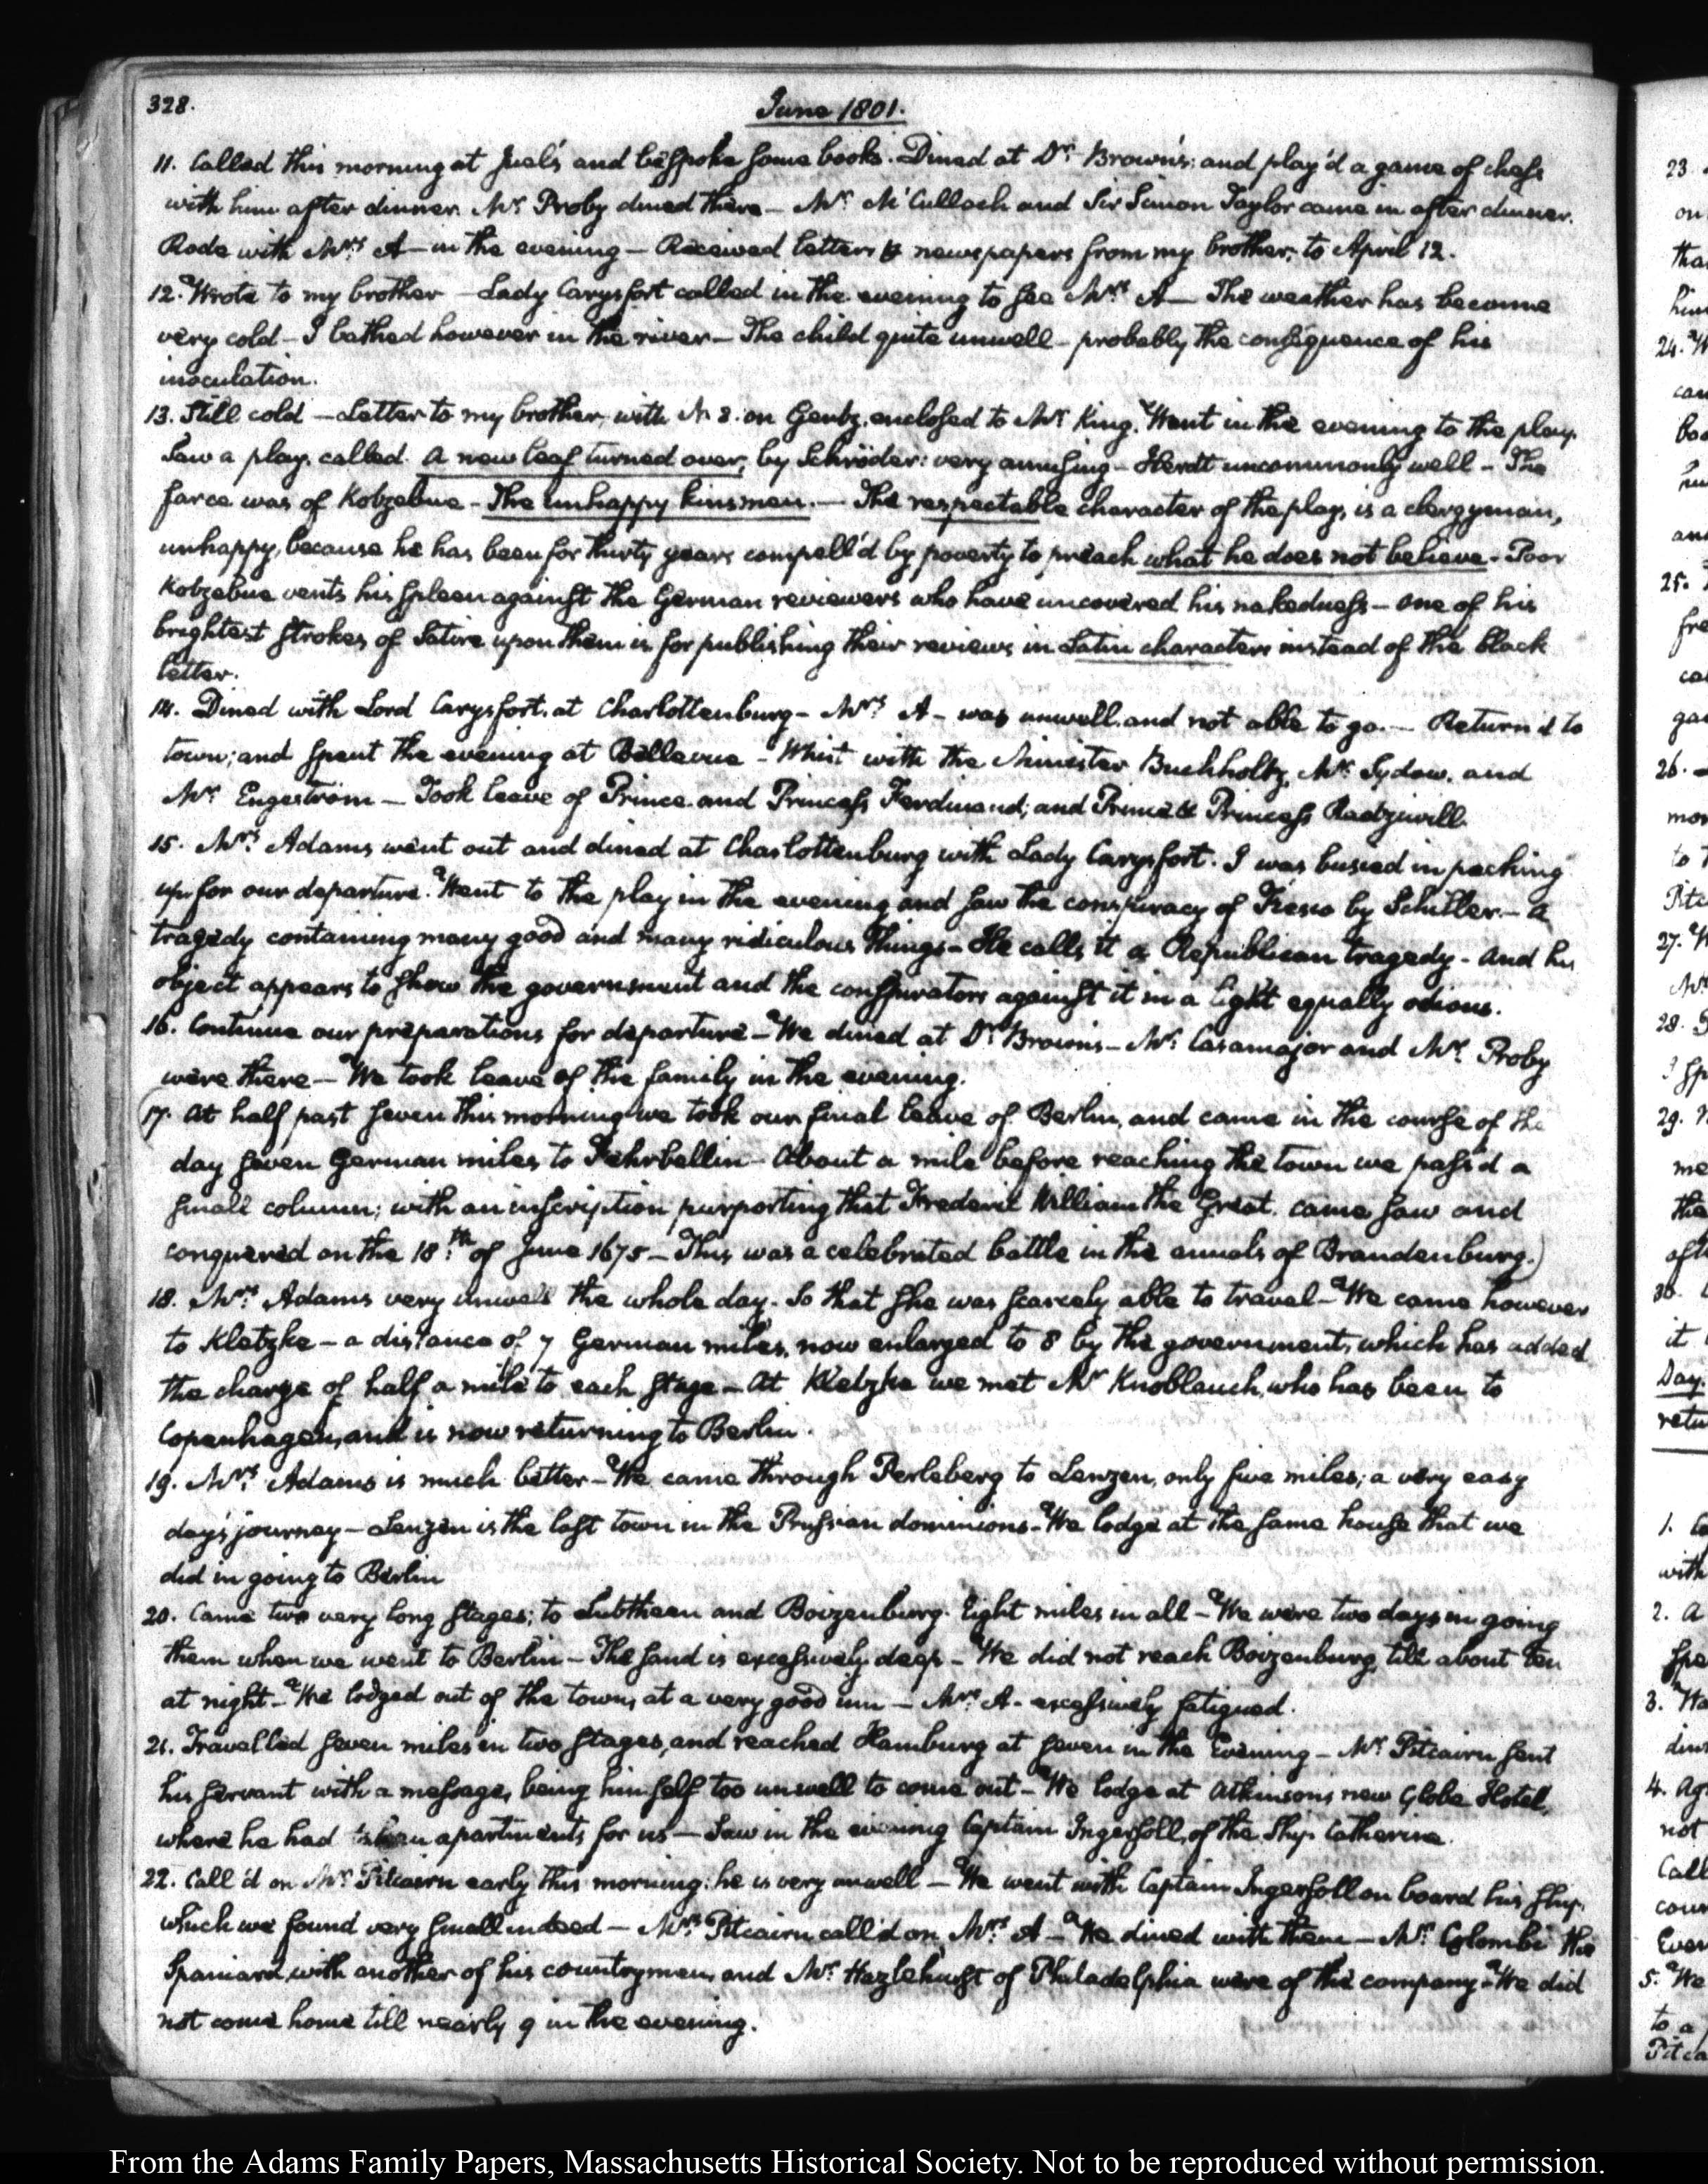 328.
June 1801.
11. Called this morning at Juel's and bespoke some books. Dined at Dr. Brown's; and play'd a game of chess
with him after dinner. Mr. Proby dined there — Mr. McCulloch and Sir Simon Taylor came in after dinner.
Rode with Mrs. A— in the evening — Received letters & newspapers from my brother, to April 12.
12. Wrote to my brother — Lady Carysfort called in the evening to see Mrs. A— The weather has become
very cold — I bathed however in the river — The child quite unwell — probably the consequence of his
inoculation.
13. Still cold — Letter to my brother, with N. 3. on Gentz, enclosed to Mr. King. Went in the evening to the play.
Saw a play, called. A new leaf turned over, by Schröder: very amusing — Herdt uncommonly well — The
farce was of Kotzebue — The unhappy kinsmen. — The respectable character of the play, is a clergyman,
unhappy, because he has been for thirty years compell'd by poverty to preach what he does not believe — Poor
Kotzebue vents his spleen against the German reviewers who have uncovered his nakedness — one of his
brightest strokes of Satire upon them is, for publishing their reviews in Latin characters instead of the black
letter.
14. Dined with Lord Carysfort, at Charlottenburg — Mrs. A— was unwell and not able to go. — Return'd to
town; and spent the evening at Bellevue — Whist with the Minister Buchholtz, Mr. Sydow, and
Mr. Engeström — Took leave of Prince and Princess Ferdinand; and Prince & Princess Radziwill.
15. Mrs. Adams went out and dined at Charlottenburg with Lady Carysfort. I was busied in packing
up for our departure. Went to the play in the evening and saw the conspiracy of Fiesco by Schiller — a
tragedy containing many good and many ridiculous things — He calls it a Republican tragedy — and his
object appears to show the government and the conspirators against it in a light equally odious.
16. Continue our preparations for departure — We dined at Dr. Brown's — Mr. Casamajor and Mr. Proby
were there — We took leave of the family in the evening.
(17. At half past seven this morning we took our final leave of Berlin, and came in the course of the
day seven German miles, to Fehrbellin — About a mile before reaching the town we pass'd a
small column; with an inscription purporting that Frederic William the Great, came saw and
conquered on the 18th. of June 1675 — This was a celebrated battle in the annals of Brandenburg.)
18. Mrs. Adams very unwell the whole day. So that she was scarcely able to travel — We came however
to Kletzke — a distance of 7 German miles, now enlarged to 8 by the government, which has added
the charge of half a mile to each stage — At Kletzke we met Mr. Knoblauch, who has been to
Copenhagen, and is now returning to Berlin.
19. Mrs. Adams is much better — We came through Perleberg to Lenzen, only five miles; a very easy
day's journey — Lenzen is the last town in the Prussian dominions — We lodge at the same house that we
did in going to Berlin
20. Came two very long stages; to Lubtheen and Boizenburg. Eight miles in all — We were two days in going
them when we went to Berlin — The sand is excessively deep — We did not reach Boizenburg, till about ten
at night — We lodged out of the town, at a very good inn — Mrs. A— excessively fatigued.
21. Travelled seven miles in two stages, and reached Hamburg at seven in the Evening — Mr. Pitcairn sent
his servant with a message, being himself too unwell to come out — We lodge at Atkinson's new Globe Hotel,
where he had taken apartments for us — Saw in the evening Captain Ingersoll, of the Ship Catherine.
22. Call'd on Mr. Pitcairn early this morning: he is very unwell — We went with Captain Ingersoll on board his ship,
which we found very small indeed — Mrs. Pitcairn call'd on Mrs. A — We dined with them — Mr. Colombi the
Spaniard, with another of his countrymen, and Mr. Hazlehurst of Philadelphia were of the company — We did
not come home till nearly 9 in the evening.
From the Adams Family Papers, Massachusetts Historical Society. Not to be reproduced without permission.